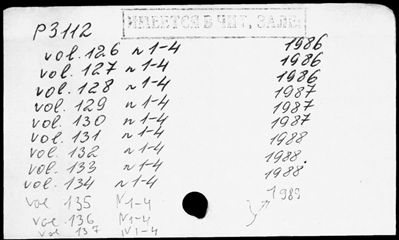 P3112
ИМЕЕТСЯ В ЧИТ. ЗАЛЕ
vol. 126 n 1-4 1986
vol. 127 n 1-4 1986
vol. 128 n 1-4 1986
vol. 129 n 1-4 1987
vol. 130 n 1-4 1987
vol. 131 n 1-4 1987
vol. 132 n 1-4 1988
vol. 133 n 1-4 1988.
vol. 134 n 1-4 1988
vol 135 N1-4 1989
vol. 136 N1-4
vol. 137 N1-4